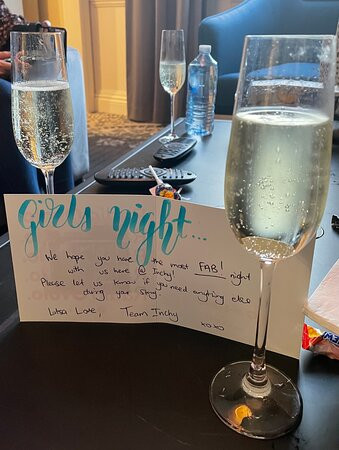 Girls night...
We hope you have the most FAB! night
with us here @ Inchy!
Please let us know if you need anything else
during your stay.
Lotsa Love, Team Inchy
xoxo